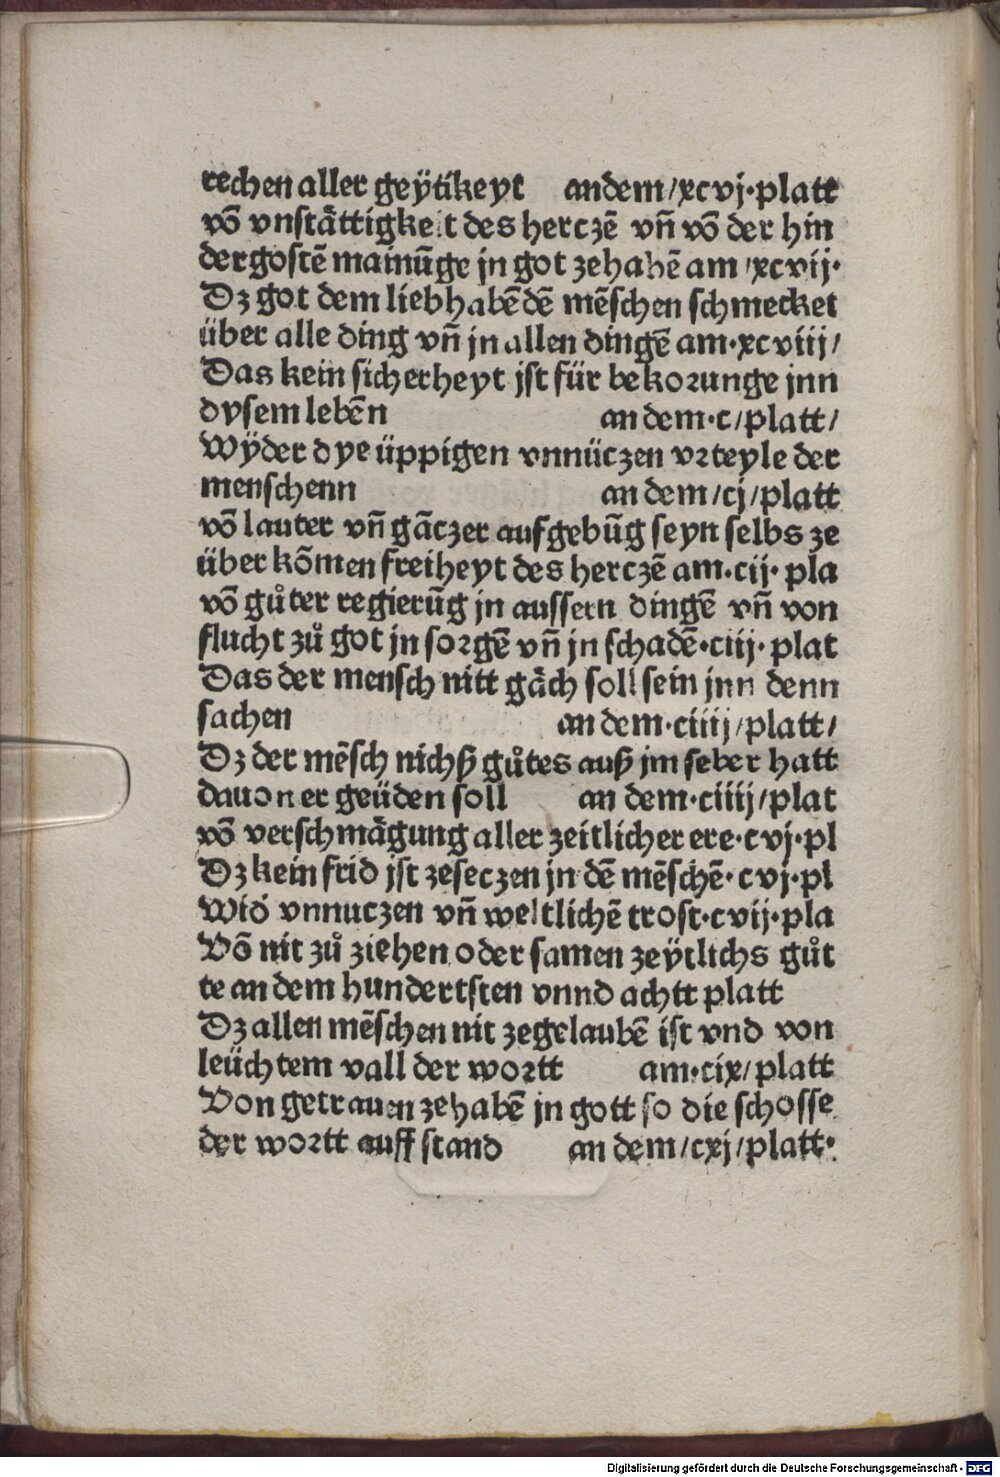 rechen aller geÿtikeyt andem/xcvj·platt
võ vnstättigkeit des herczē vñ võ der hin
dergostē mainūge jn got zehabē am/xcvij·
Dz got dem liebhabēdē mēschen schmecket
über alle ding vñ jn allen dingē am·xcviij/
Das kein sicherheyt jst für bekorunge jnn
dysem lebēn an dem·c/platt/
Wÿder dye üppigen vnnüczen vrteyle der
menschenn an dem/cj/platt
võ lauter vñ gāczer aufgebūg seyn selbs ze
über kōmen freiheyt des herczē am·cij· pla
võ gůter regierūg jn aussern dingē vñ von
flucht zů got jn sorgē vñ jn schadē·ciij· plat
Das der mensch nitt gäch soll sein jnn denn
sachen an dem·ciiij/platt/
Dz der mēsch nichß gůtes auß jm selber hatt
dauon er geüden soll an dem·ciiij/plat
võ verschmägung aller zeitlicher ere·cvj·pl
Dz kein frid jst zeseczen jn dē mēschē·cvj·pl
Wid̕ vnnuczen vñ weltlichē trost·cvij·pla
Võ nit zů ziehen oder samen zeÿtlichs gůt
te an dem hundertsten vnnd achtt platt
Dz allen mēschen nit zegelaubē ist vnd von
leüchtem vall der wortt am·cix/platt
Von getrauen zehabē jn gott so die schosse
der wortt auff stand an dem/cxj/platt·
Digitalisierung gefördert durch die Deutsche Forschungsgemeinschaft - DFG